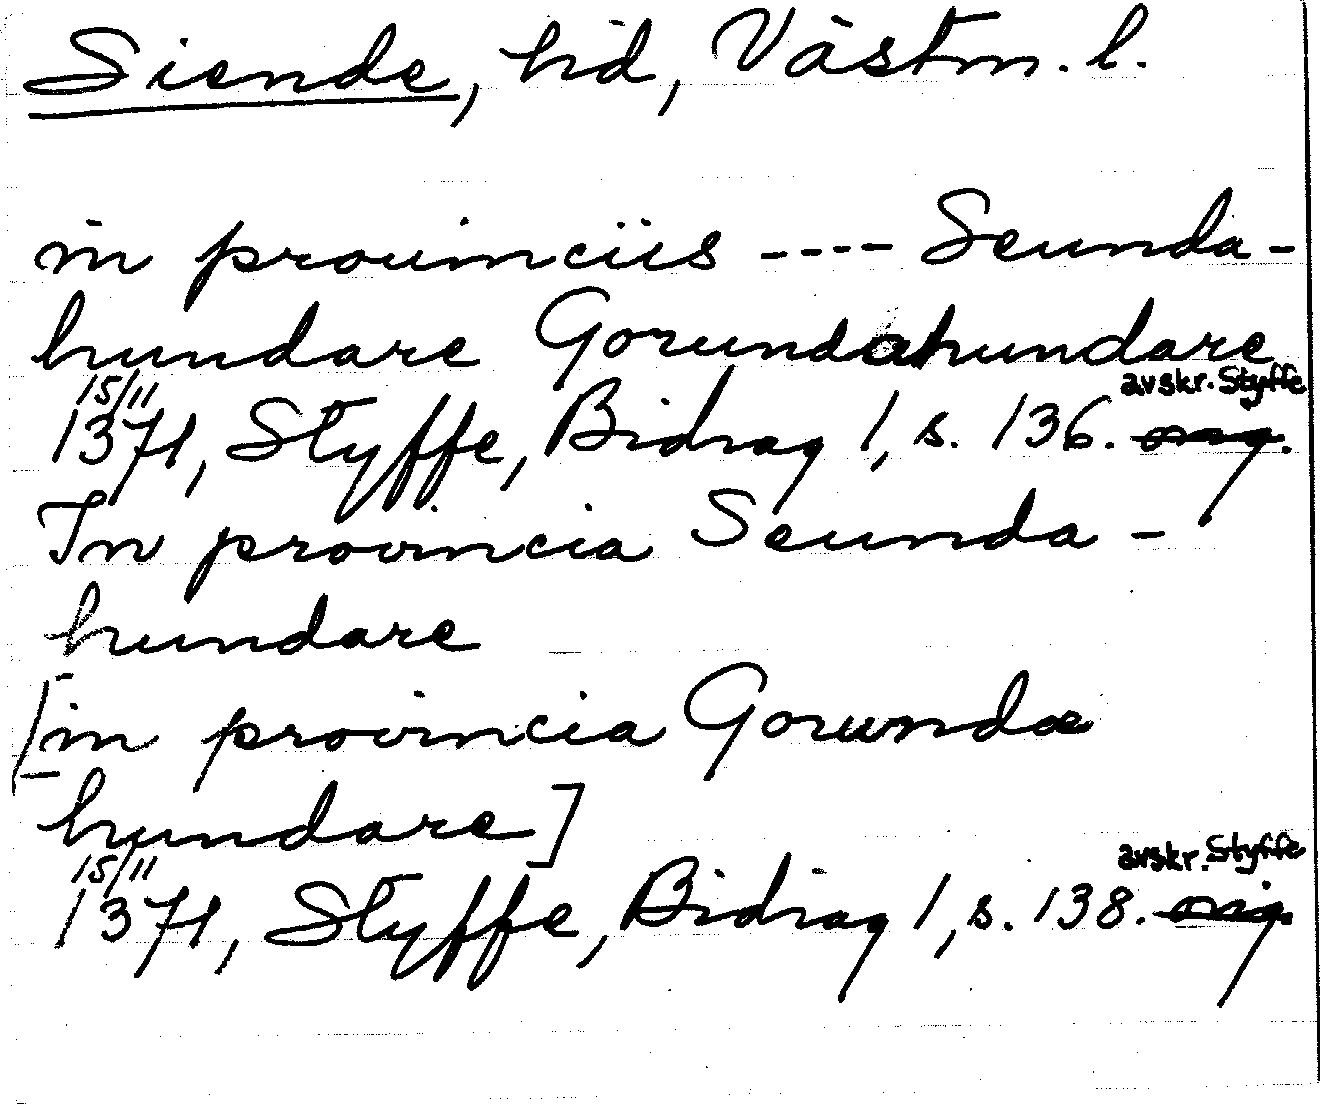 Siende, hd, Västm. l.
in prouinciis ---- Seunda-
hundare Gorundahundare
15/11 avskr. Styffe
1371, Styffe, Bidrag 1, s. 136. orig.
In provincia Seunda-
hundare
[in provincia Gorunda
hundare]
15/11 avskr. Styffe
1371, Styffe, Bidrag 1, s. 138. orig.